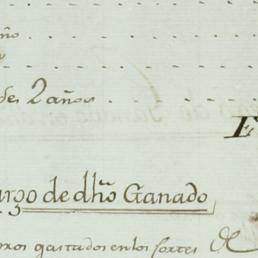 ño
des 2 años
E
argo de dho Ganado
gastados en los fortes de